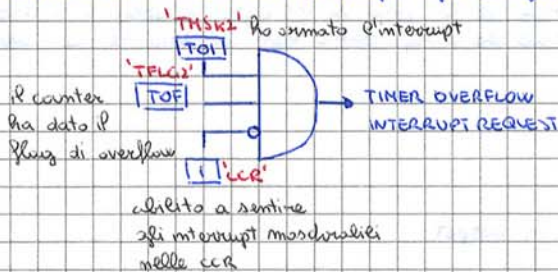 'TMSK2' ho armato l'interrupt
TOI
'TFLG2'
TOF
il counter
ha dato il
flag di overflow
TIMER OVERFLOW
INTERRUPT REQUEST
I 'CCR'
abilito a sentire
gli interrupt mascherabili
nelle CCR